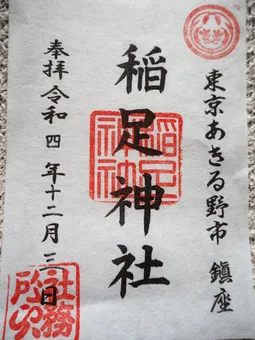 東京あきる野市 鎮座
稲足神社
奉拝 令和四年十二月三日
稲足神社
社務所印